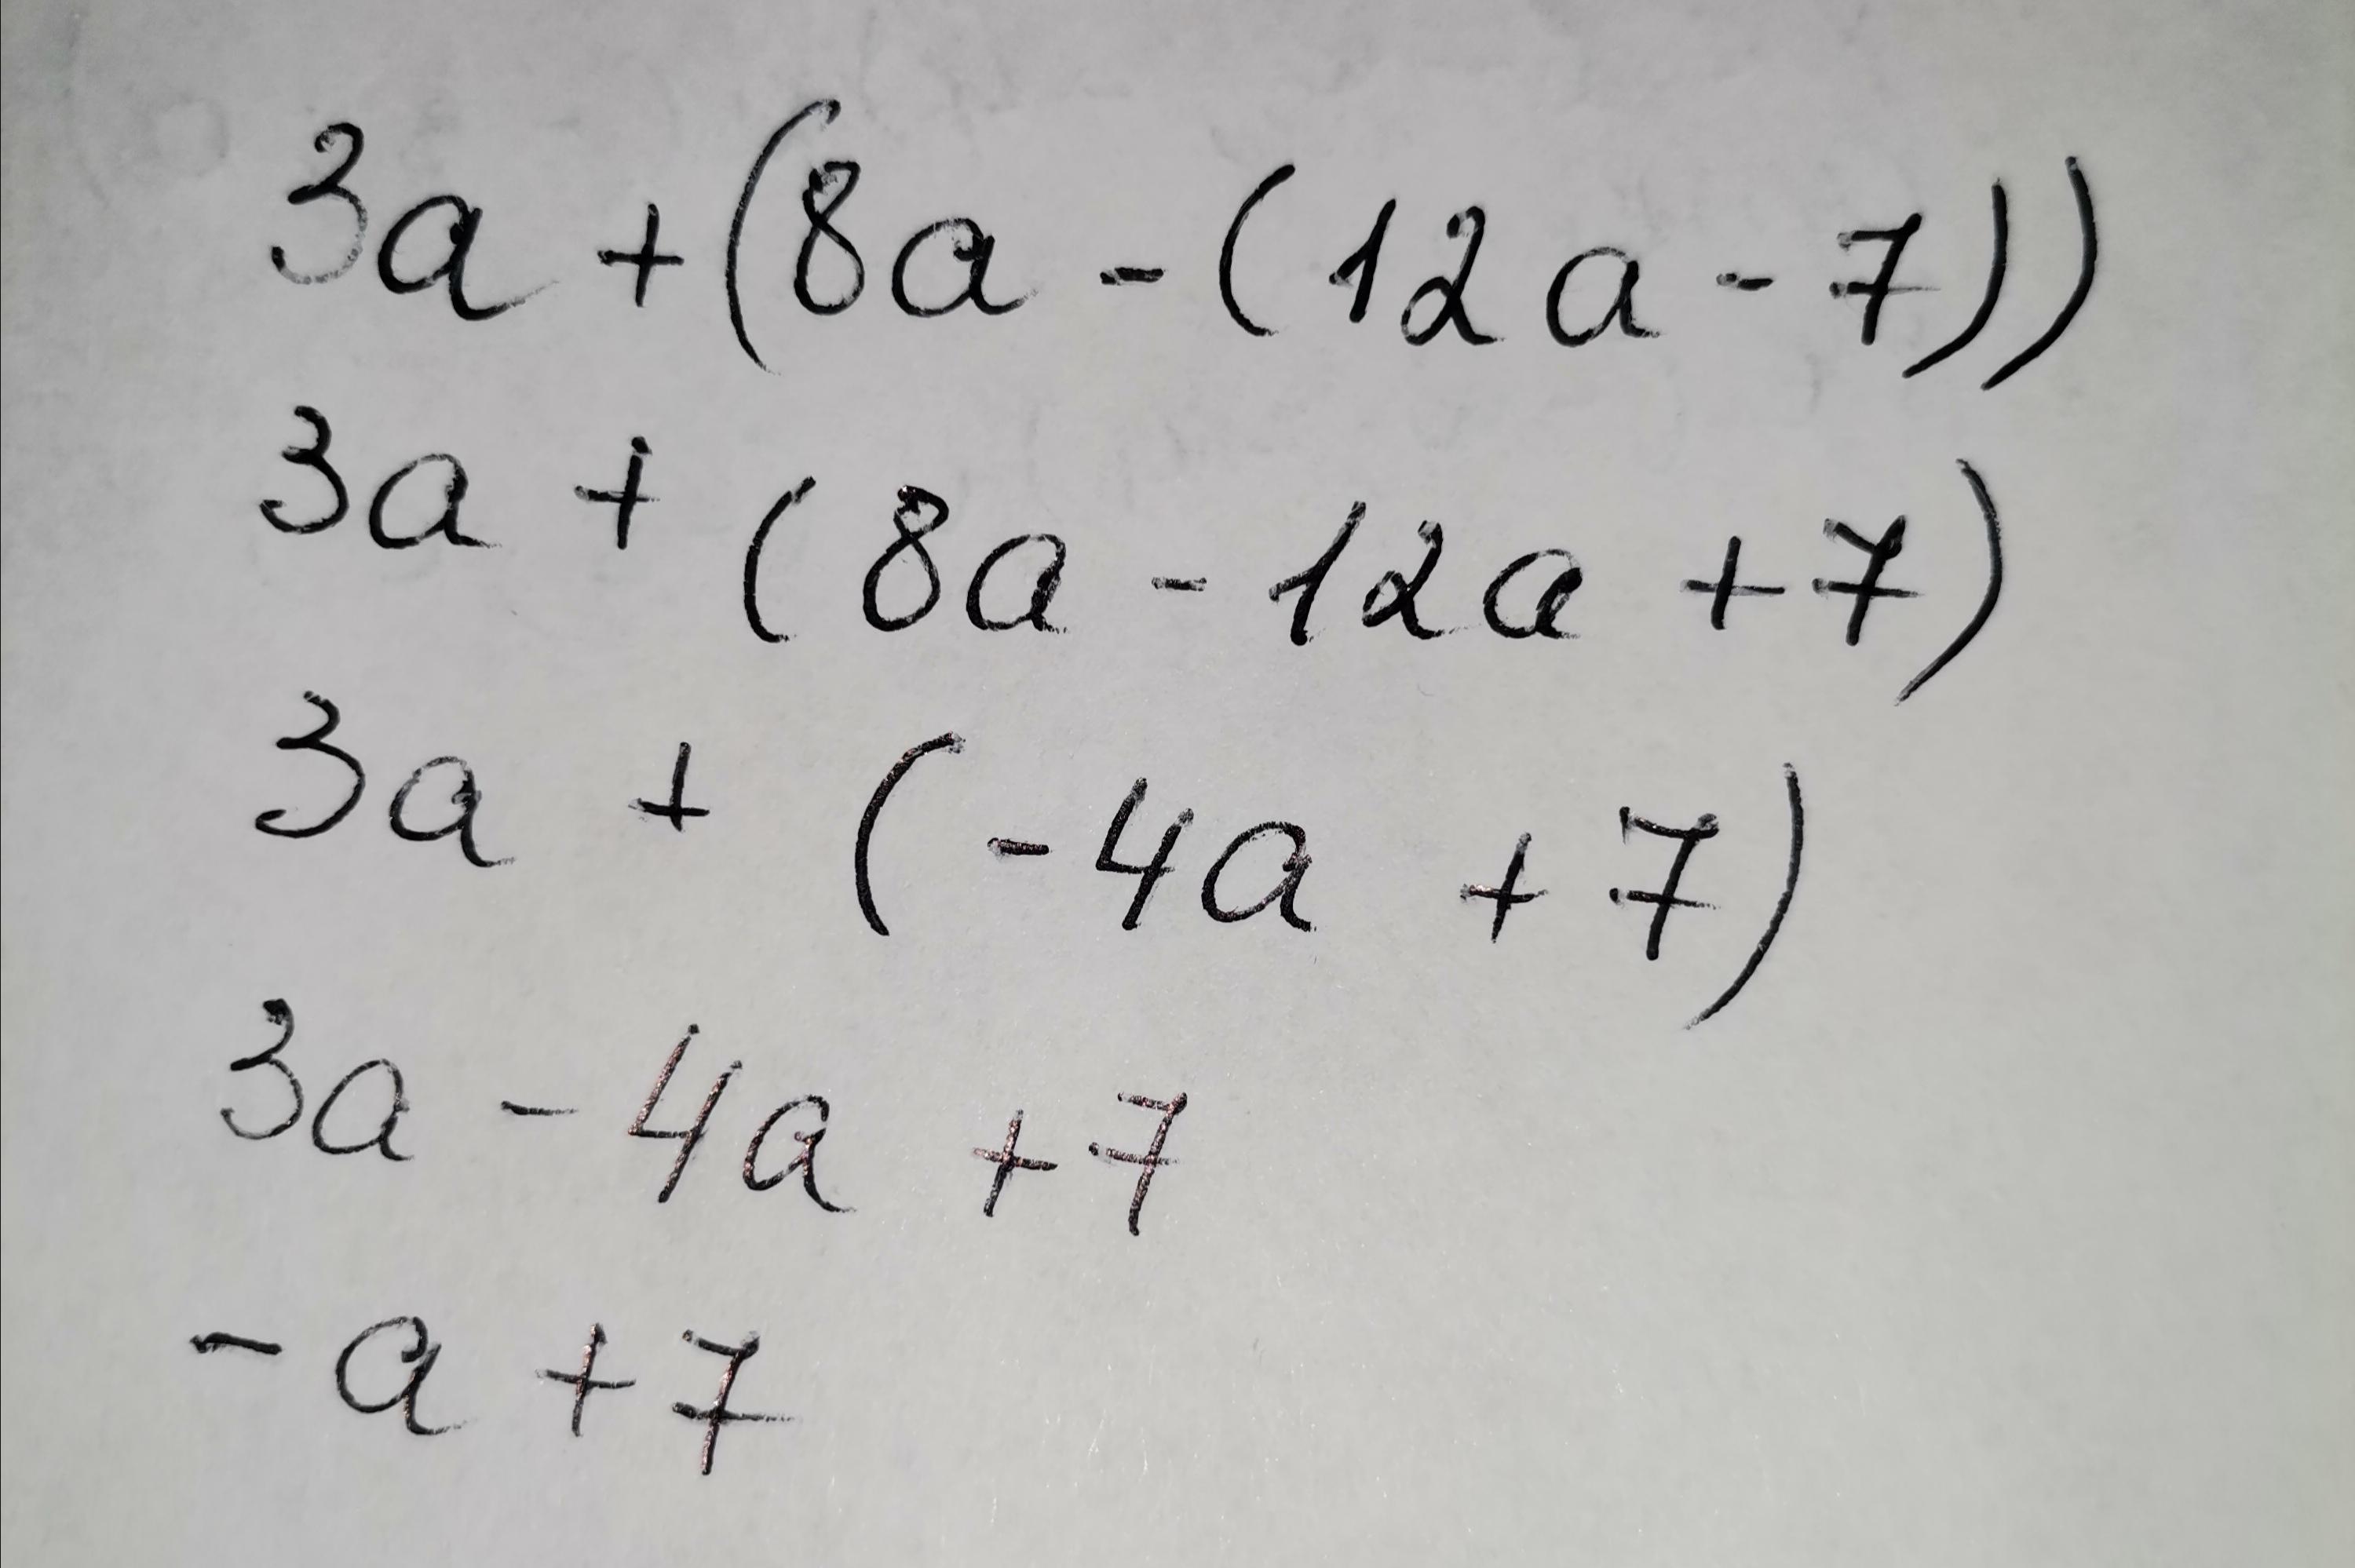 3a + (8a - (12a - 7))
3a + (8a - 12a + 7)
3a + (-4a + 7)
3a - 4a + 7
-a + 7